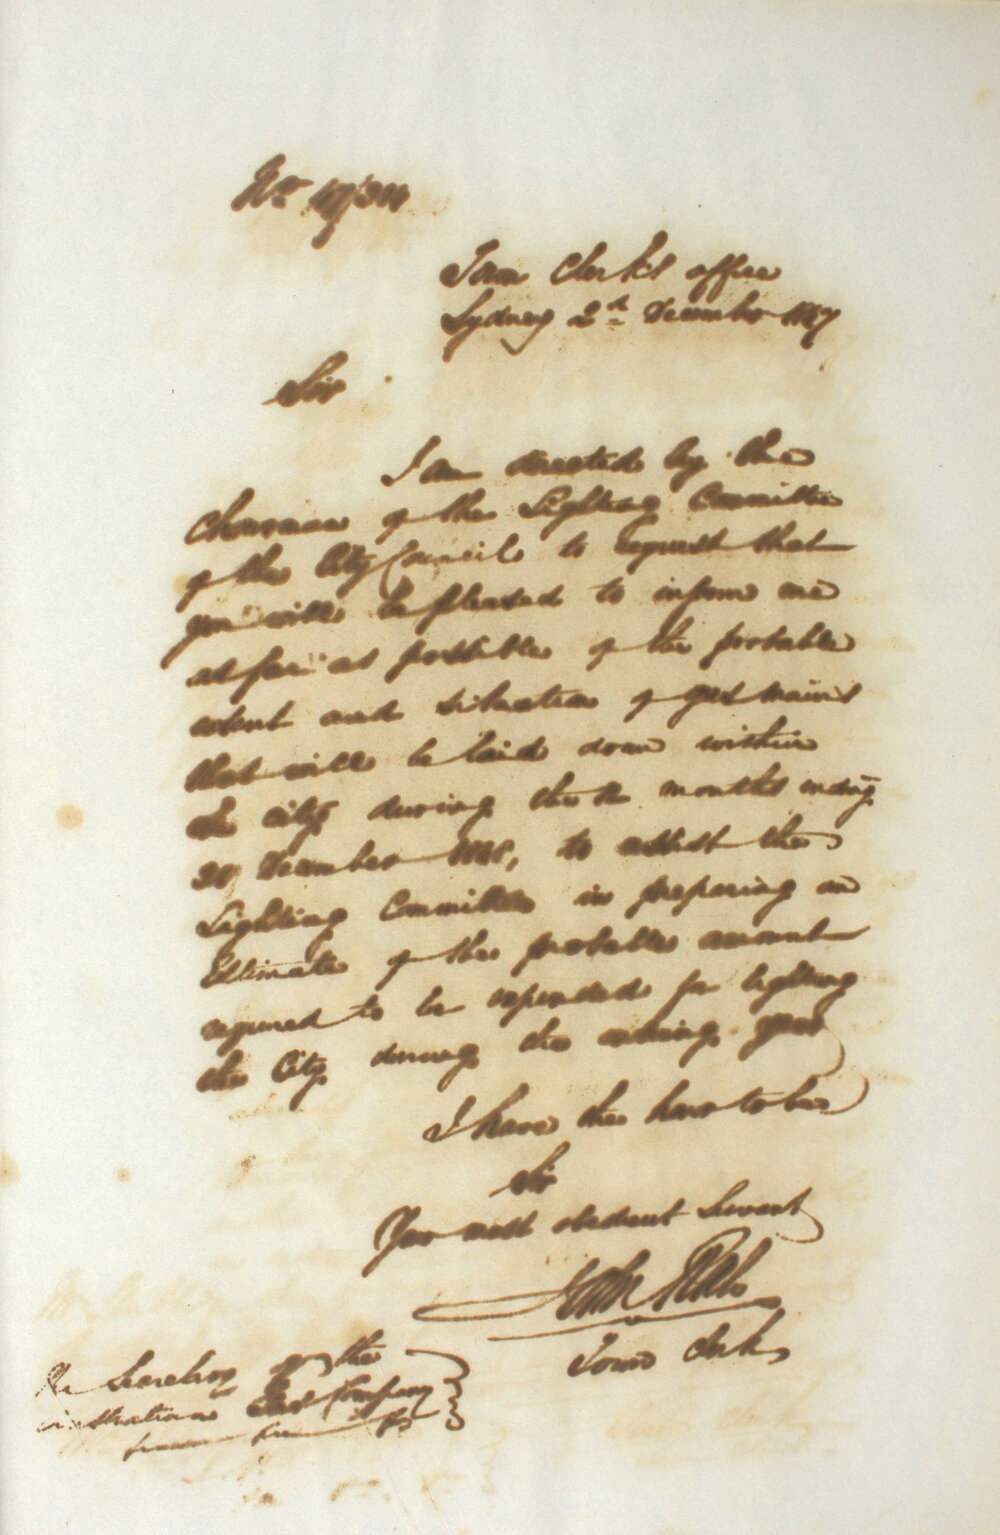 No. 47/311
Town Clerk's office
Sydney 2d December 1847
Sir
I am directed by the
Chairman of the Lighting Committee
of the City Council to request that
you will be pleased to inform me
as far as possible of the probable
extent and situation of gas mains
that will be laid down within
the city during the 12 months ending
December 1848, to assist the
Lighting Committee in preparing an
Estimate of the probable amount
required to be expended for lighting
the City during the ensuing year
I have the honor to be
Sir
Your most obedient Servant
John Rae
Town Clerk
The Secretary of the
Australian Gas Company